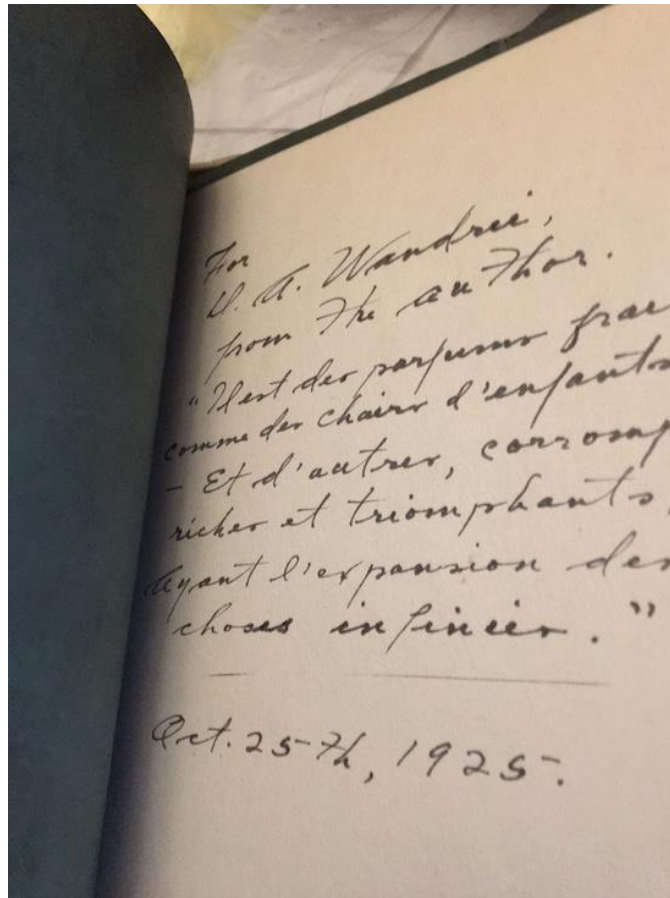 For
D. A. Wandrei,
from the author.
"Il est des parfums frai
comme des chairs d'enfants
- Et d'autres, corromp
riches et triomphants,
Ayant l'expansion des
choses infinies."
Oct. 25th, 1925.